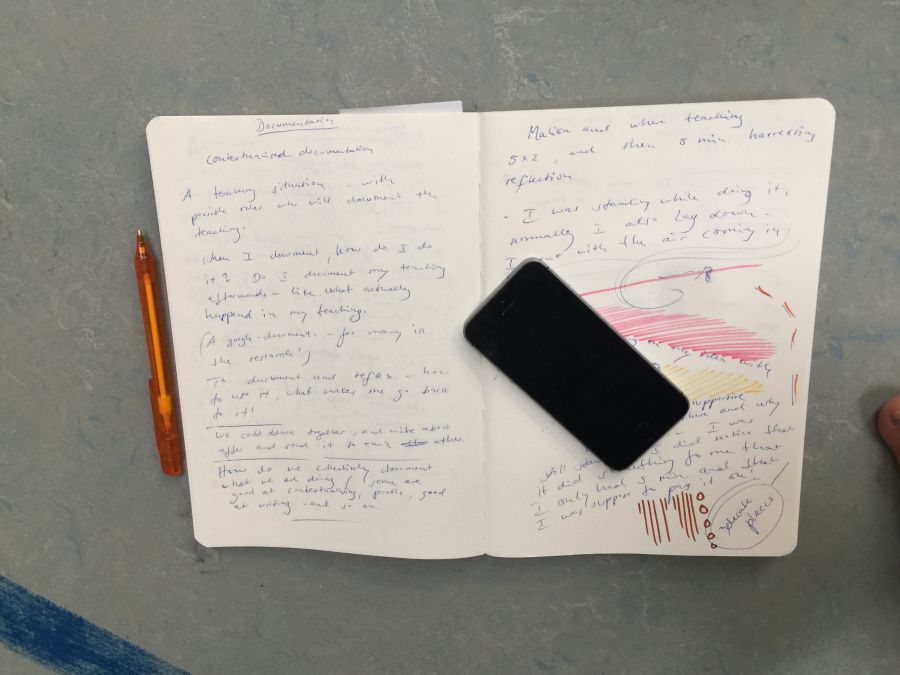 Documentation
contextualised documentation
A teaching situation - with
possible roles who will document the
teaching.
When I document, how do I do
it? Do I document my teaching
afterwards - like what actually
happend in my teaching.
(A google-document - for many in
the research!)
To document and reflex. - how
to use it, what makes me go back
to it!
We could dance together, and write about
after and send it to each other.
How do we collectively document
what we are doing, some are
good at contextualising, poetic, good
at writing - and so on.
and when teaching
5x2, and then 5 min harvesting
reflection
- I was standing while doing it,
normally I also lay down -
I with the air coming in
with
supportive
here and why
still I was
I did notice that
it did something to me that
I only had 5 min and that
I was suppose to pass it on!
Delicate
places